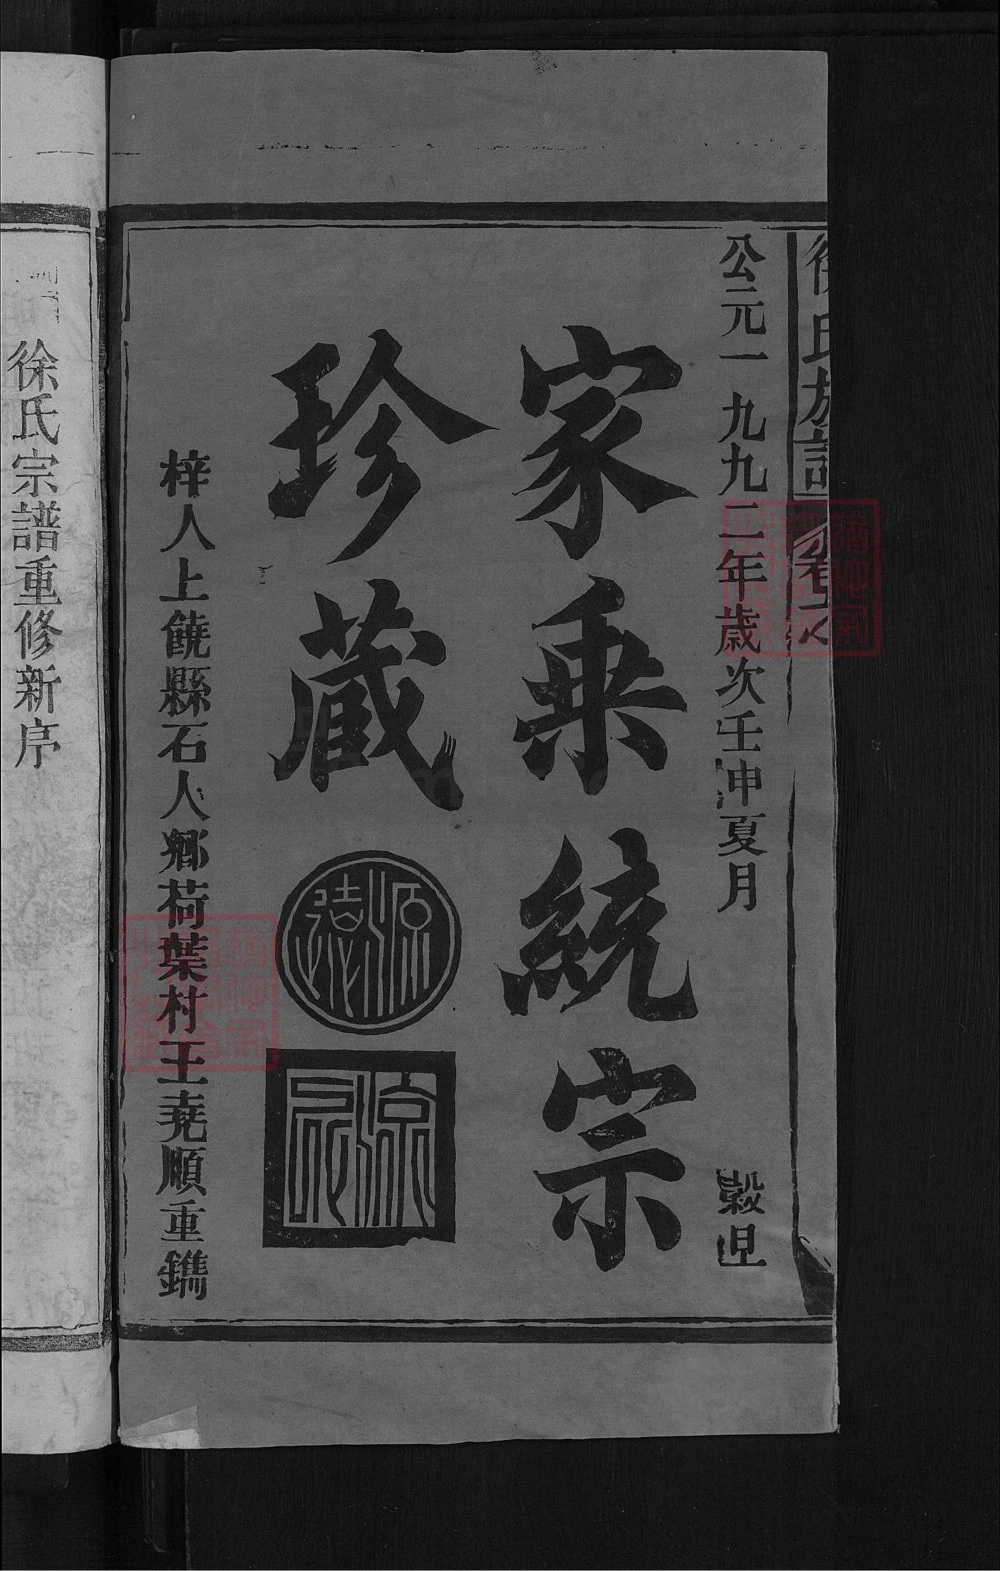 徐氏族譜
卷之
公元一九九二年歲次壬申夏月
穀旦
家乘統宗
珍蔵
源遠
源
梓人上饒縣石人鄉荷葉村王堯順重鐫
徐氏宗譜重修新序